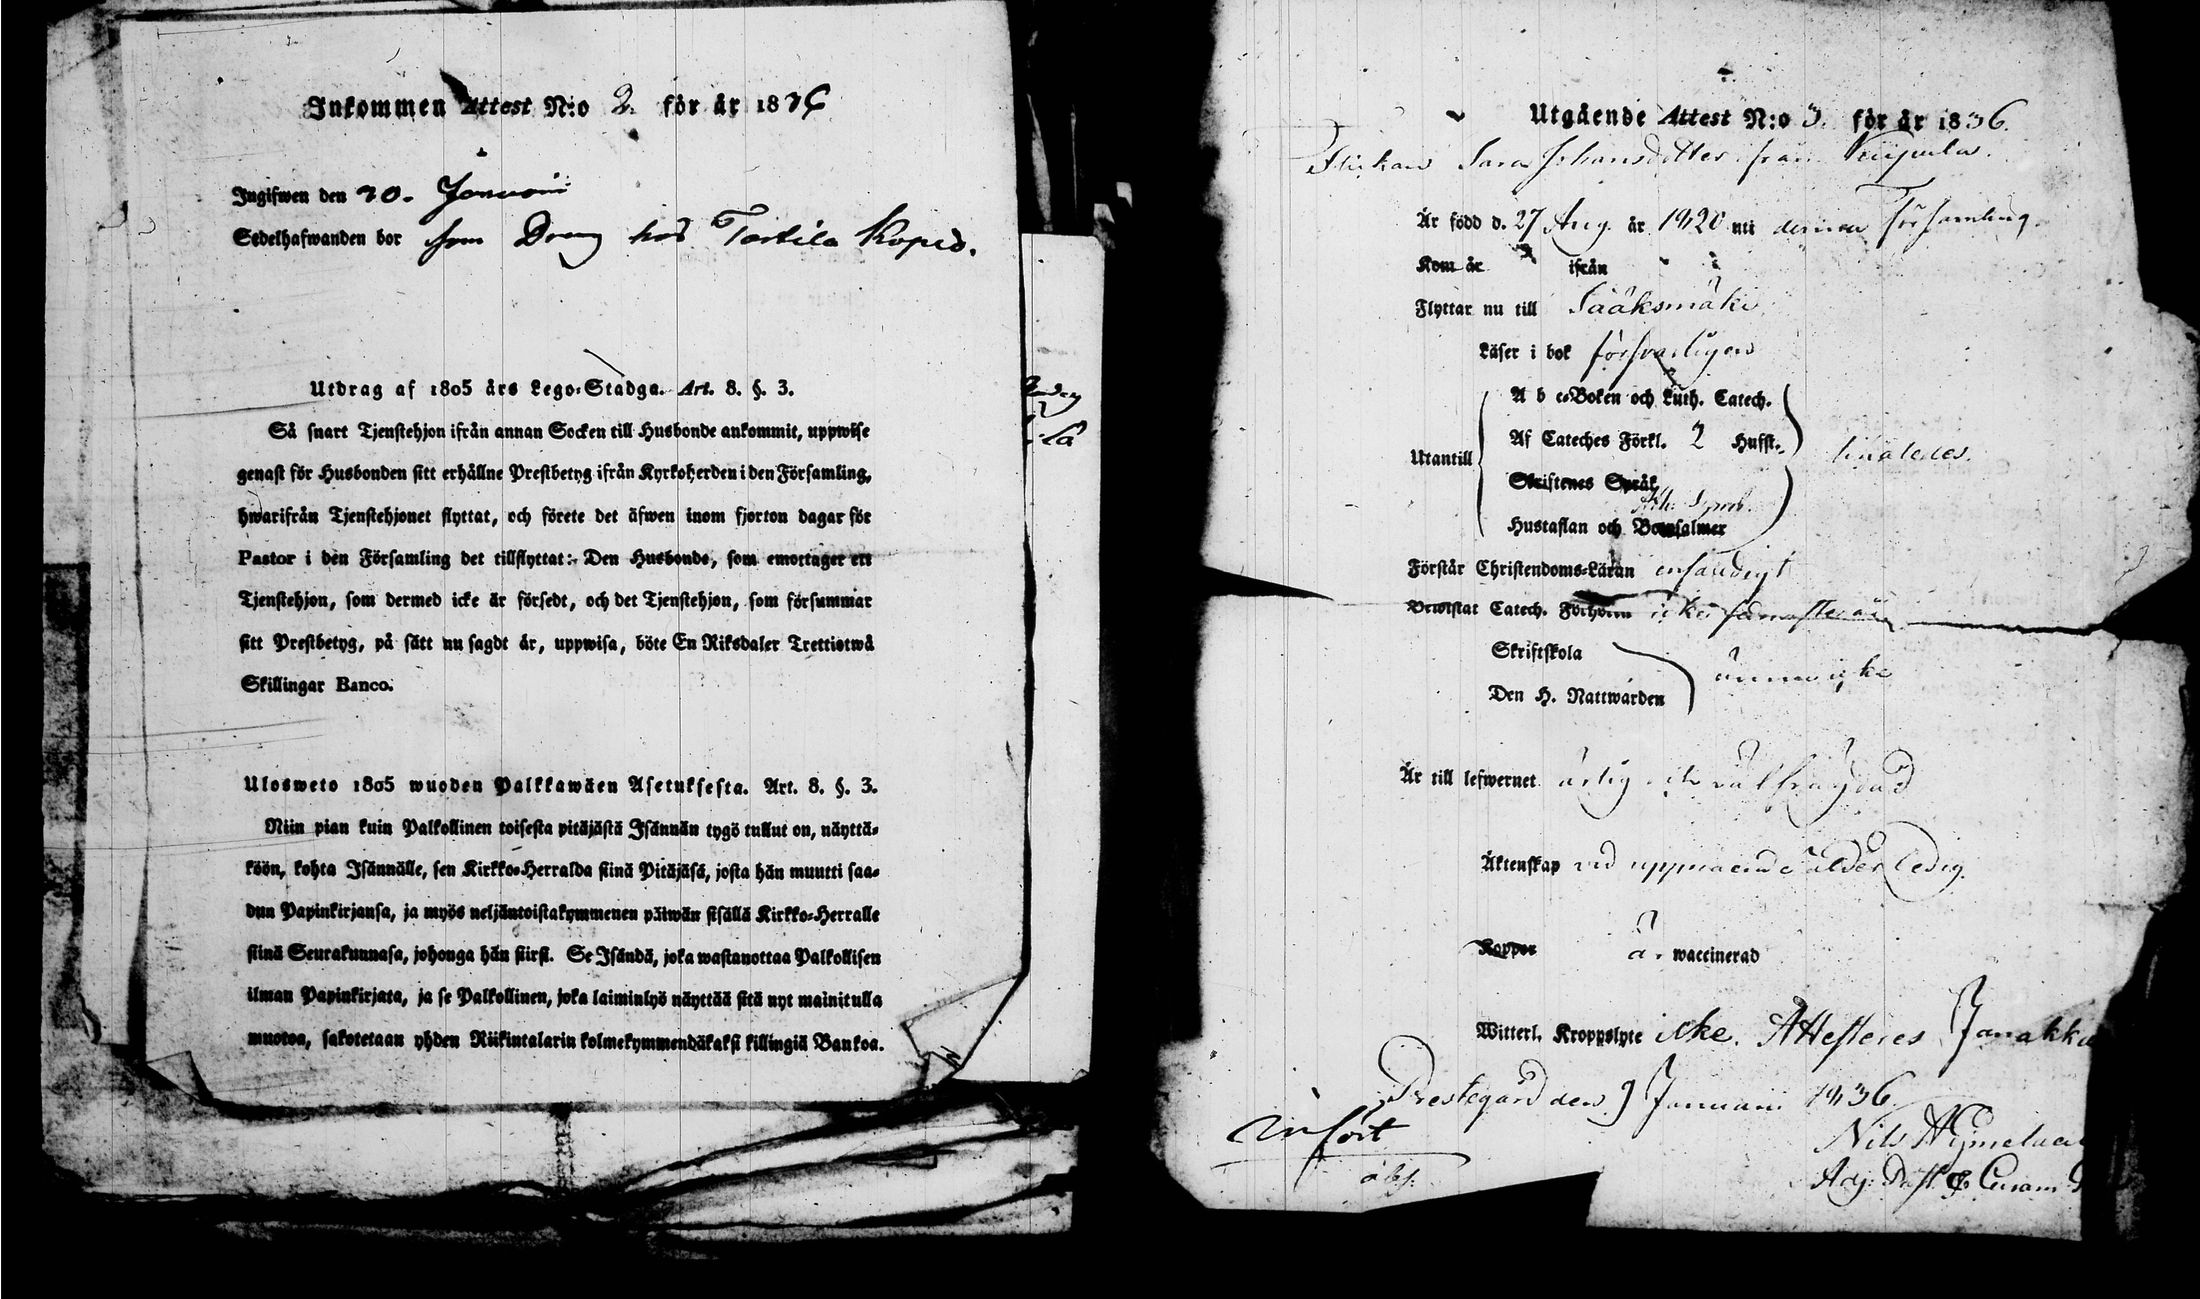 Inkommen Attest N:o 2. för år 1836
Ingifwen den 30. Januari
Sedelhafwanden bor som Dräng hos Tortila Kopis.
Utdrag af 1805 års Lego-Stadga. Art. 8. §. 3.
Så snart Tjenstehjon ifrån annan Socken till Husbonde ankommit, uppwise
genast för Husbonden sitt erhållne Prestbetyg ifrån Kyrkoherden i den Församling,
hwarifrån Tjenstehjonet flyttat, och förete det äfwen inom fjorton dagar för
Pastor i den Församling det tillflyttat: Den Husbonde, som emottager ett
Tjenstehjon, som dermed icke är försedt, och det Tjenstehjon, som försummar
sitt Prestbetyg, på sätt nu sagdt är, uppwisa, böte En Riksdaler Trettiotwå
Skillingar Banco.
Ulosweto 1805 wuoden Palkkawäen Asetuksesta. Art. 8. §. 3.
Niin pian kuin Palkollinen toisesta pitäjästä Isännän tygö tullut on, näyttä-
köön, kohta Isännälle, sen Kirkko-Herralda siinä Pitäjäsä, josta hän muutti saa-
dun Papinkirjansa, ja myös neljäntoistakymmenen päiwän sisällä Kirkko-Herralle
siinä Seurakunnasa, johonga hän siirsi. Se Isändä, joka wastanottaa Palkollisen
ilman Papinkirjata, ja se Palkollinen, joka laiminlyö näyttää sitä nyt mainitulla
muotoa, sakotetaan yhden Riikintalarin kolmekymmendäkaksi killingiä Bankoa.
Utgående Attest N:o 3. för år 1836.
Flickan Sara Johansdotter från
Är född d. 27 Aug. år 1820 uti denna Församling.
Kom år ifrån
Flyttar nu till Sääksmäki
Läser i bok försvarligen
A b c-Boken och Luth. Catech.
Af Cateches Förkl. 2 Hufst.
Utantill likaledes.
Skriftenes Språk
Ath. Symb.
Hustaflan och Botpsalmer
Förstår Christendoms-Läran enfaldigt
Bewistat Catech. Förhören icke
Skriftskola
ännu icke
Den H. Nattwarden
Är till lefwernet ärlig och välfräjdad
Äktenskap vid uppnående ålder ledig.
Koppor är waccinerad
Witterl. Kroppslyte icke. Attesteres Janakkala
Prestegård den 9 Januari 1836.
Infört
Nils
Adj. Past. & Curam